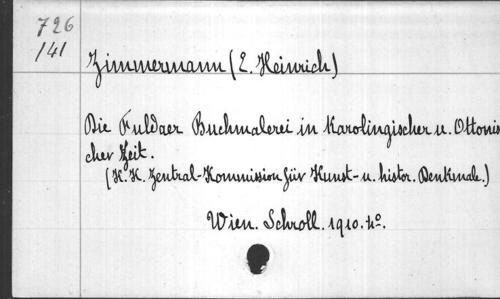 726
/41
Zimmermann (E. Heinrich)
Die Fuldaer Buchmalerei in Karolingischer u. Ottonis
cher Zeit.
(K. K. Zentral-Kommission für Kunst- u. histor. Denkmale.)
Wien. Schroll. 1910. 4o.